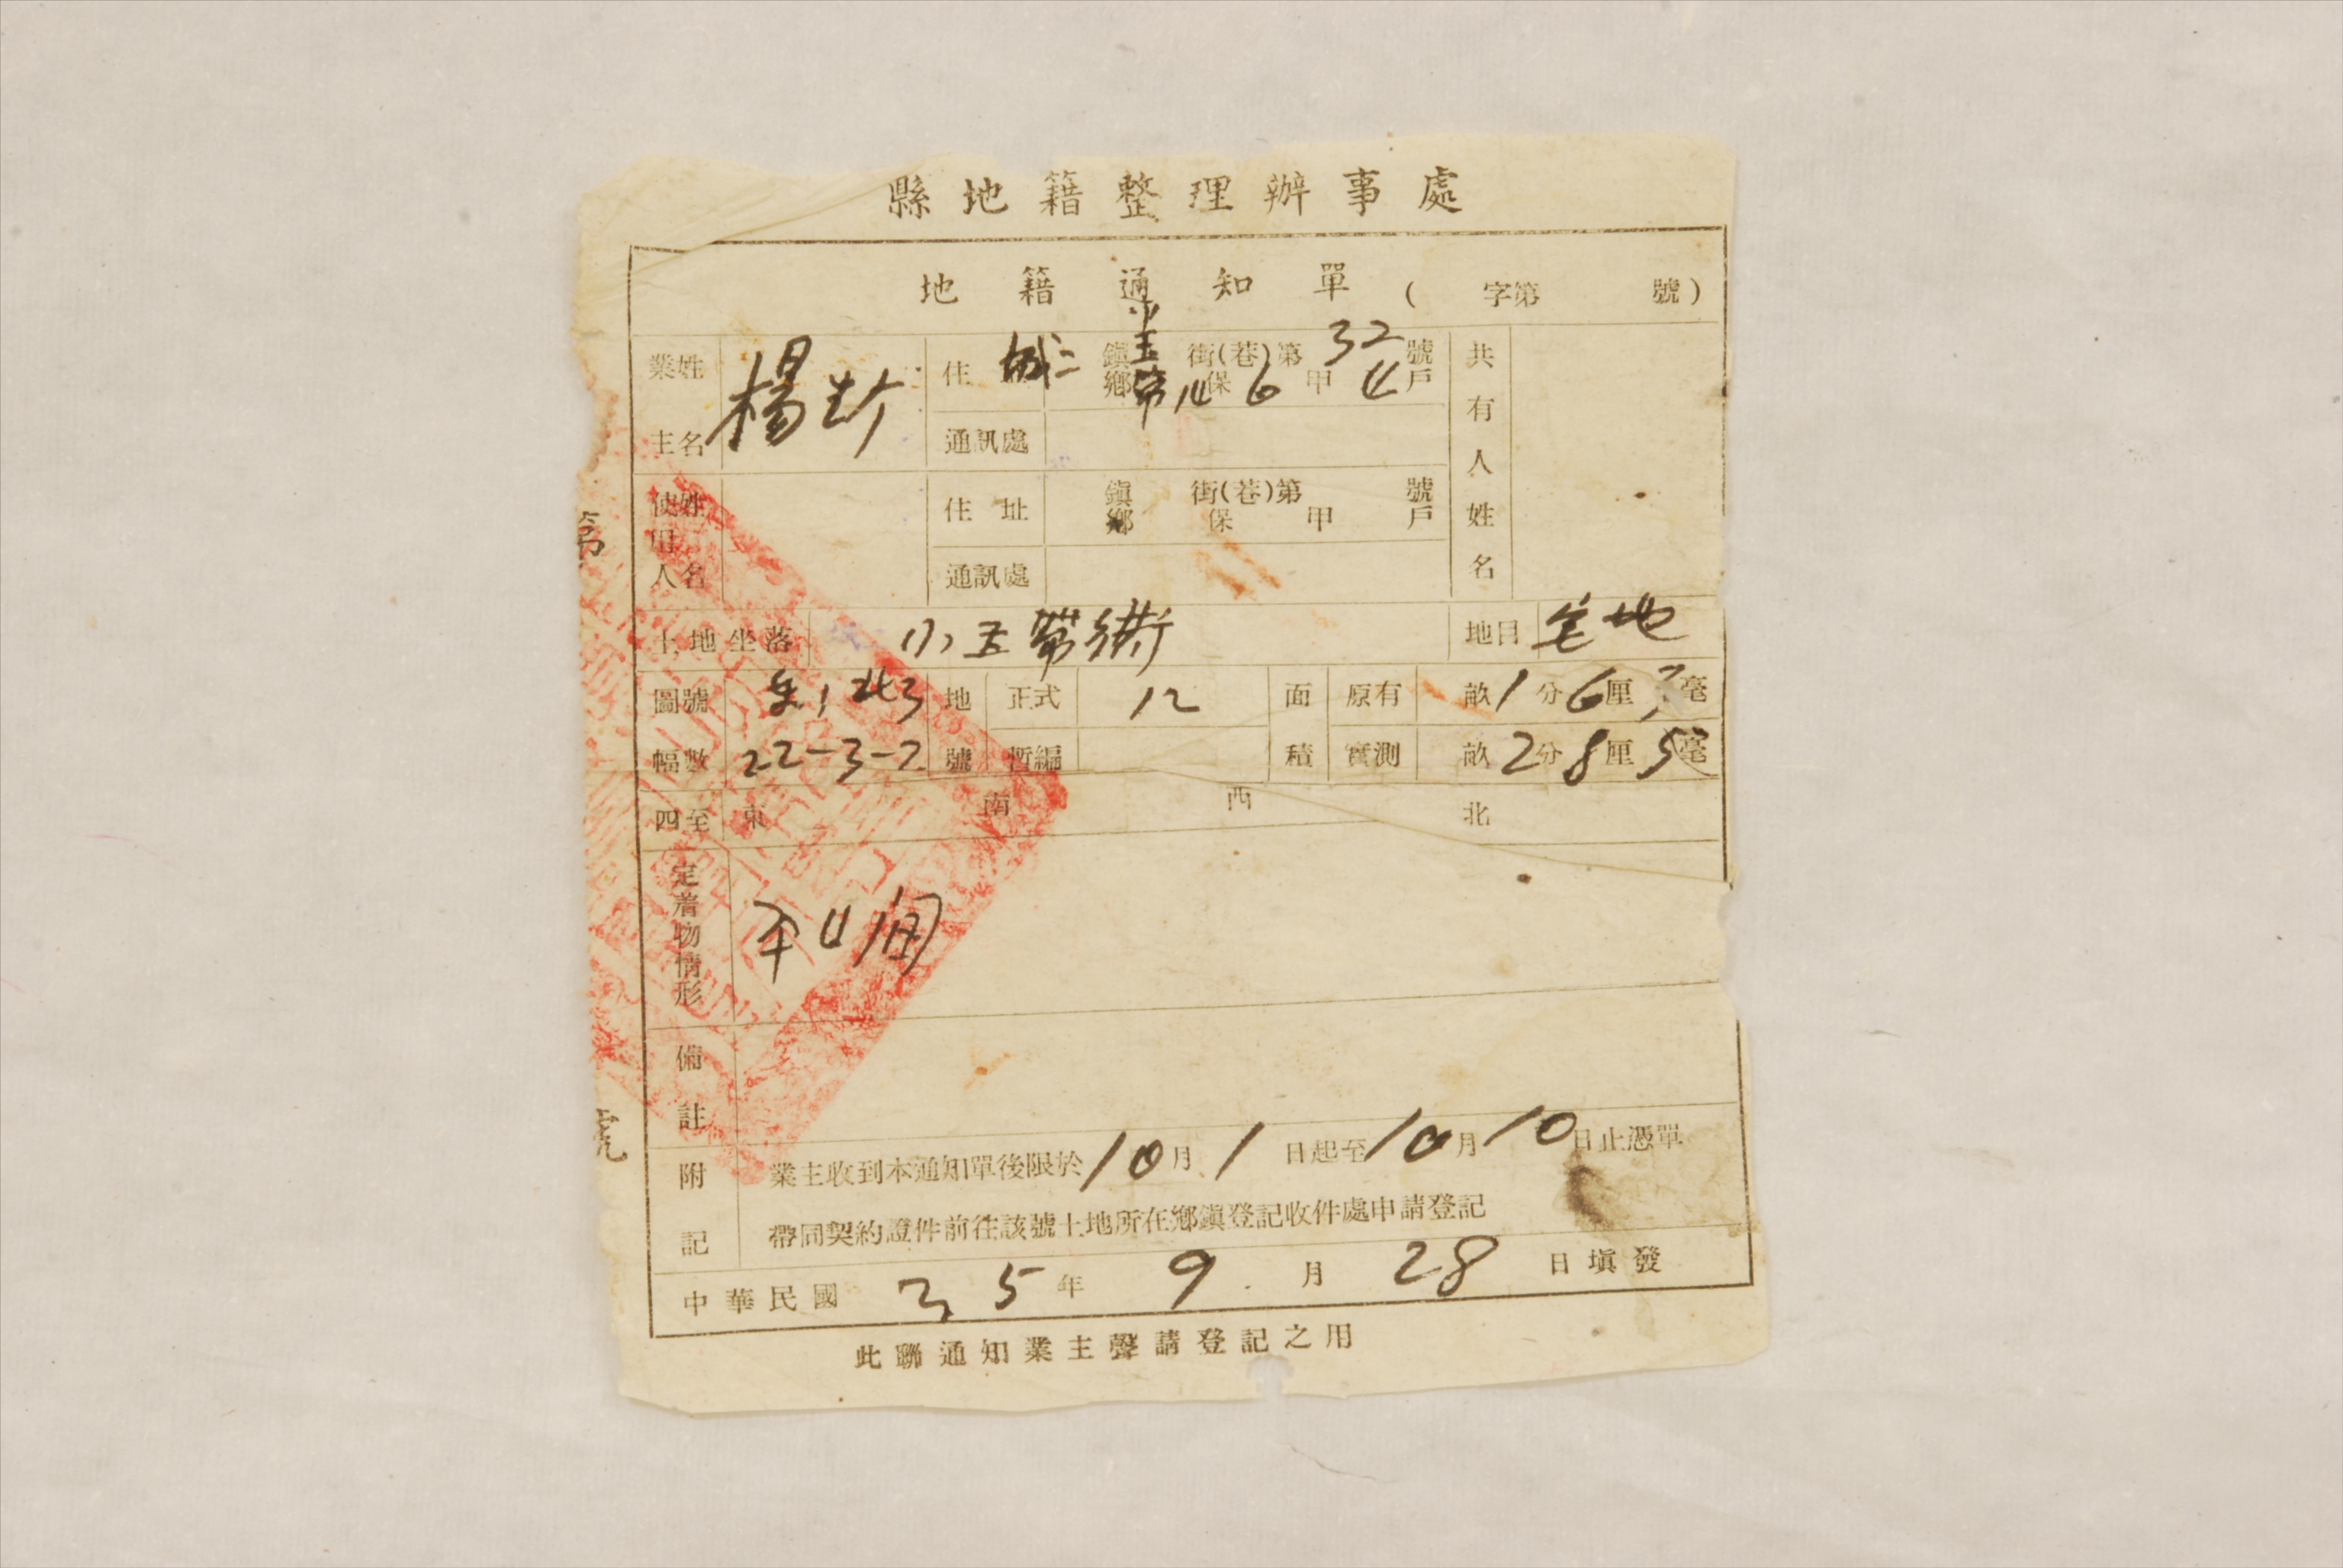 縣地籍整理辦事處
地籍通知單（ 字第 號）
業主姓名 楊 住 城二 鎮鄉 小五 街（巷）第 32 號 保 6 甲 戶
通訊處
共有人姓名
使用人姓名 住址 鎮鄉 街（巷）第 號 保 甲 戶
通訊處
第
土地坐落 小五帶街 地目 宅地
圖號 地號 正式 12 面積 原有 畝 1 分 6 厘 毫
幅數 22-3-2 暫編 實測 畝 2 分 8 厘 5 毫
四至 東 南 西 北
定着物情形 平 間
備註
號
附記 業主收到本通知單後限於 10 月 1 日起至 10 月 10 日止憑單
帶同契約證件前往該號土地所在鄉鎮登記收件處申請登記
中華民國 35 年 9 月 28 日填發
此聯通知業主聲請登記之用